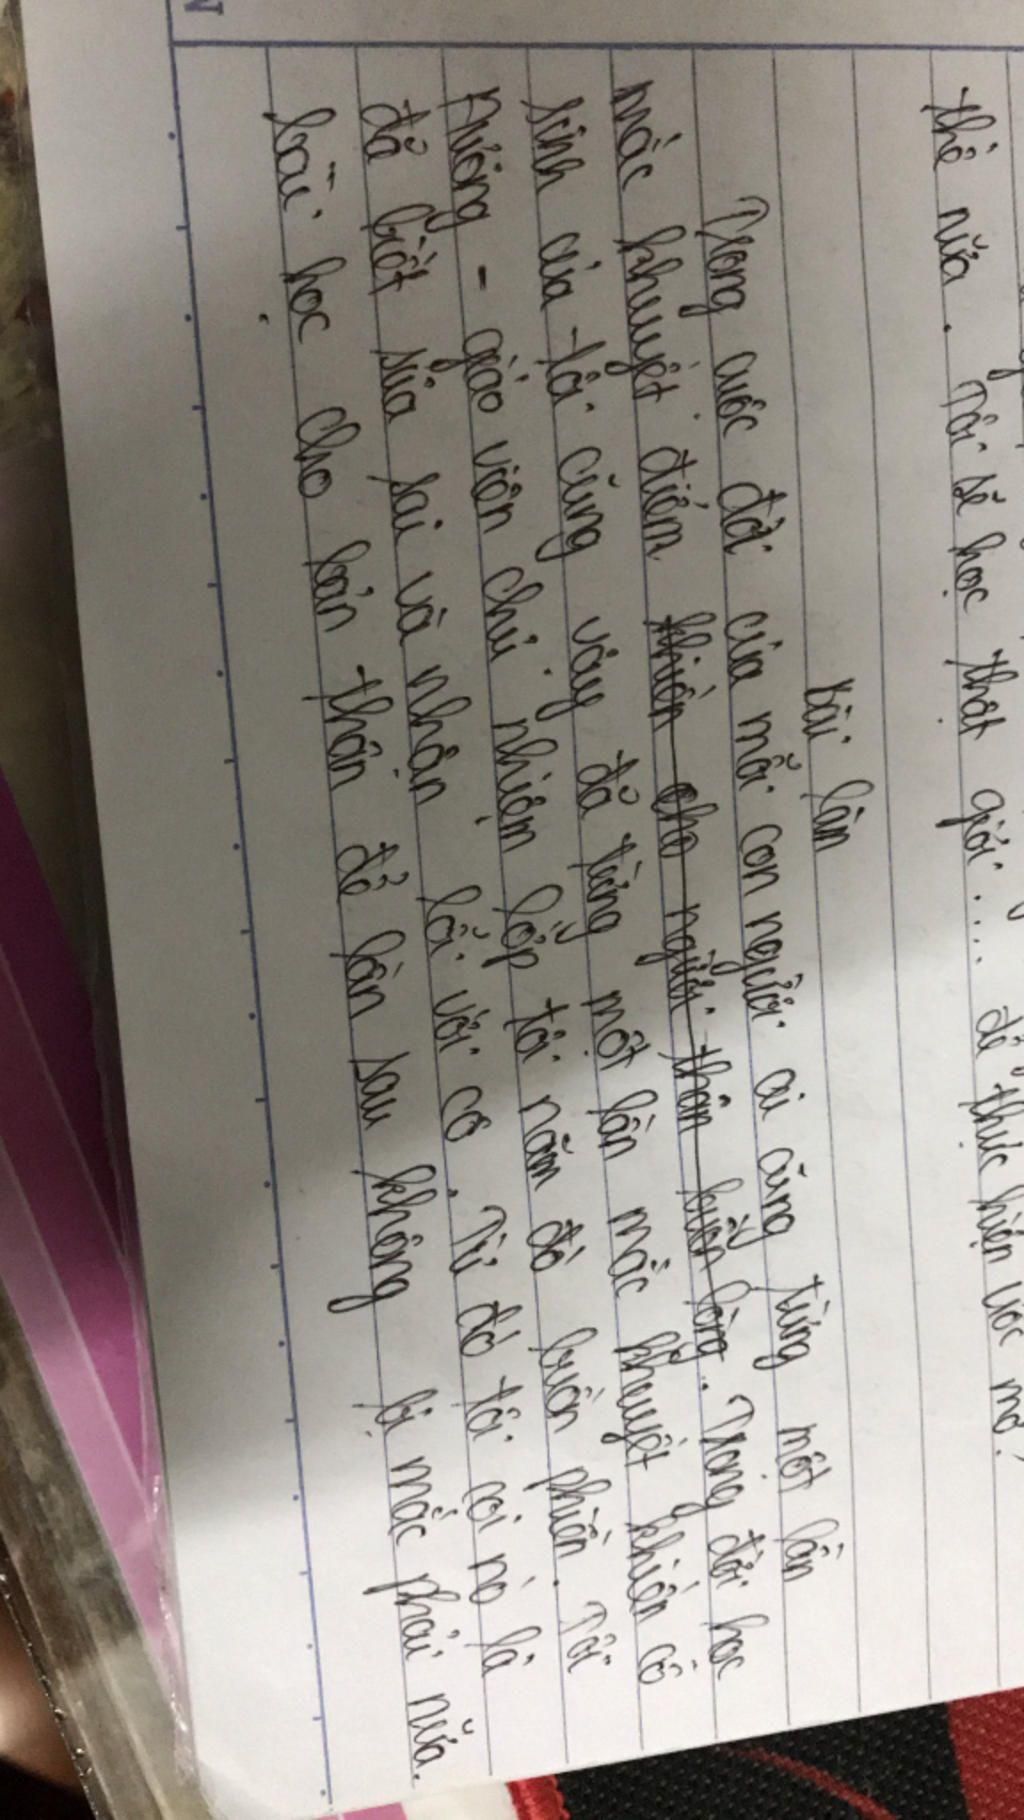 thế nữa. Tôi sẽ học thật giỏi.... để thực hiện ước mơ.
Bài làm
Trong cuộc đời của mỗi con người ai cũng từng một lần
mắc khuyết điểm khiến cho người thân buồn lòng. Trong đời học
sinh của tôi cũng vậy đã từng một lần mắc khuyết khiến cô
giáo viên chủ nhiệm lớp tôi năm đó buồn phiền. Tôi
đã biết sửa sai và nhận lỗi với cô. Từ đó tôi coi nó là
bài học cho bản thân để lần sau không bị mắc phải nữa.